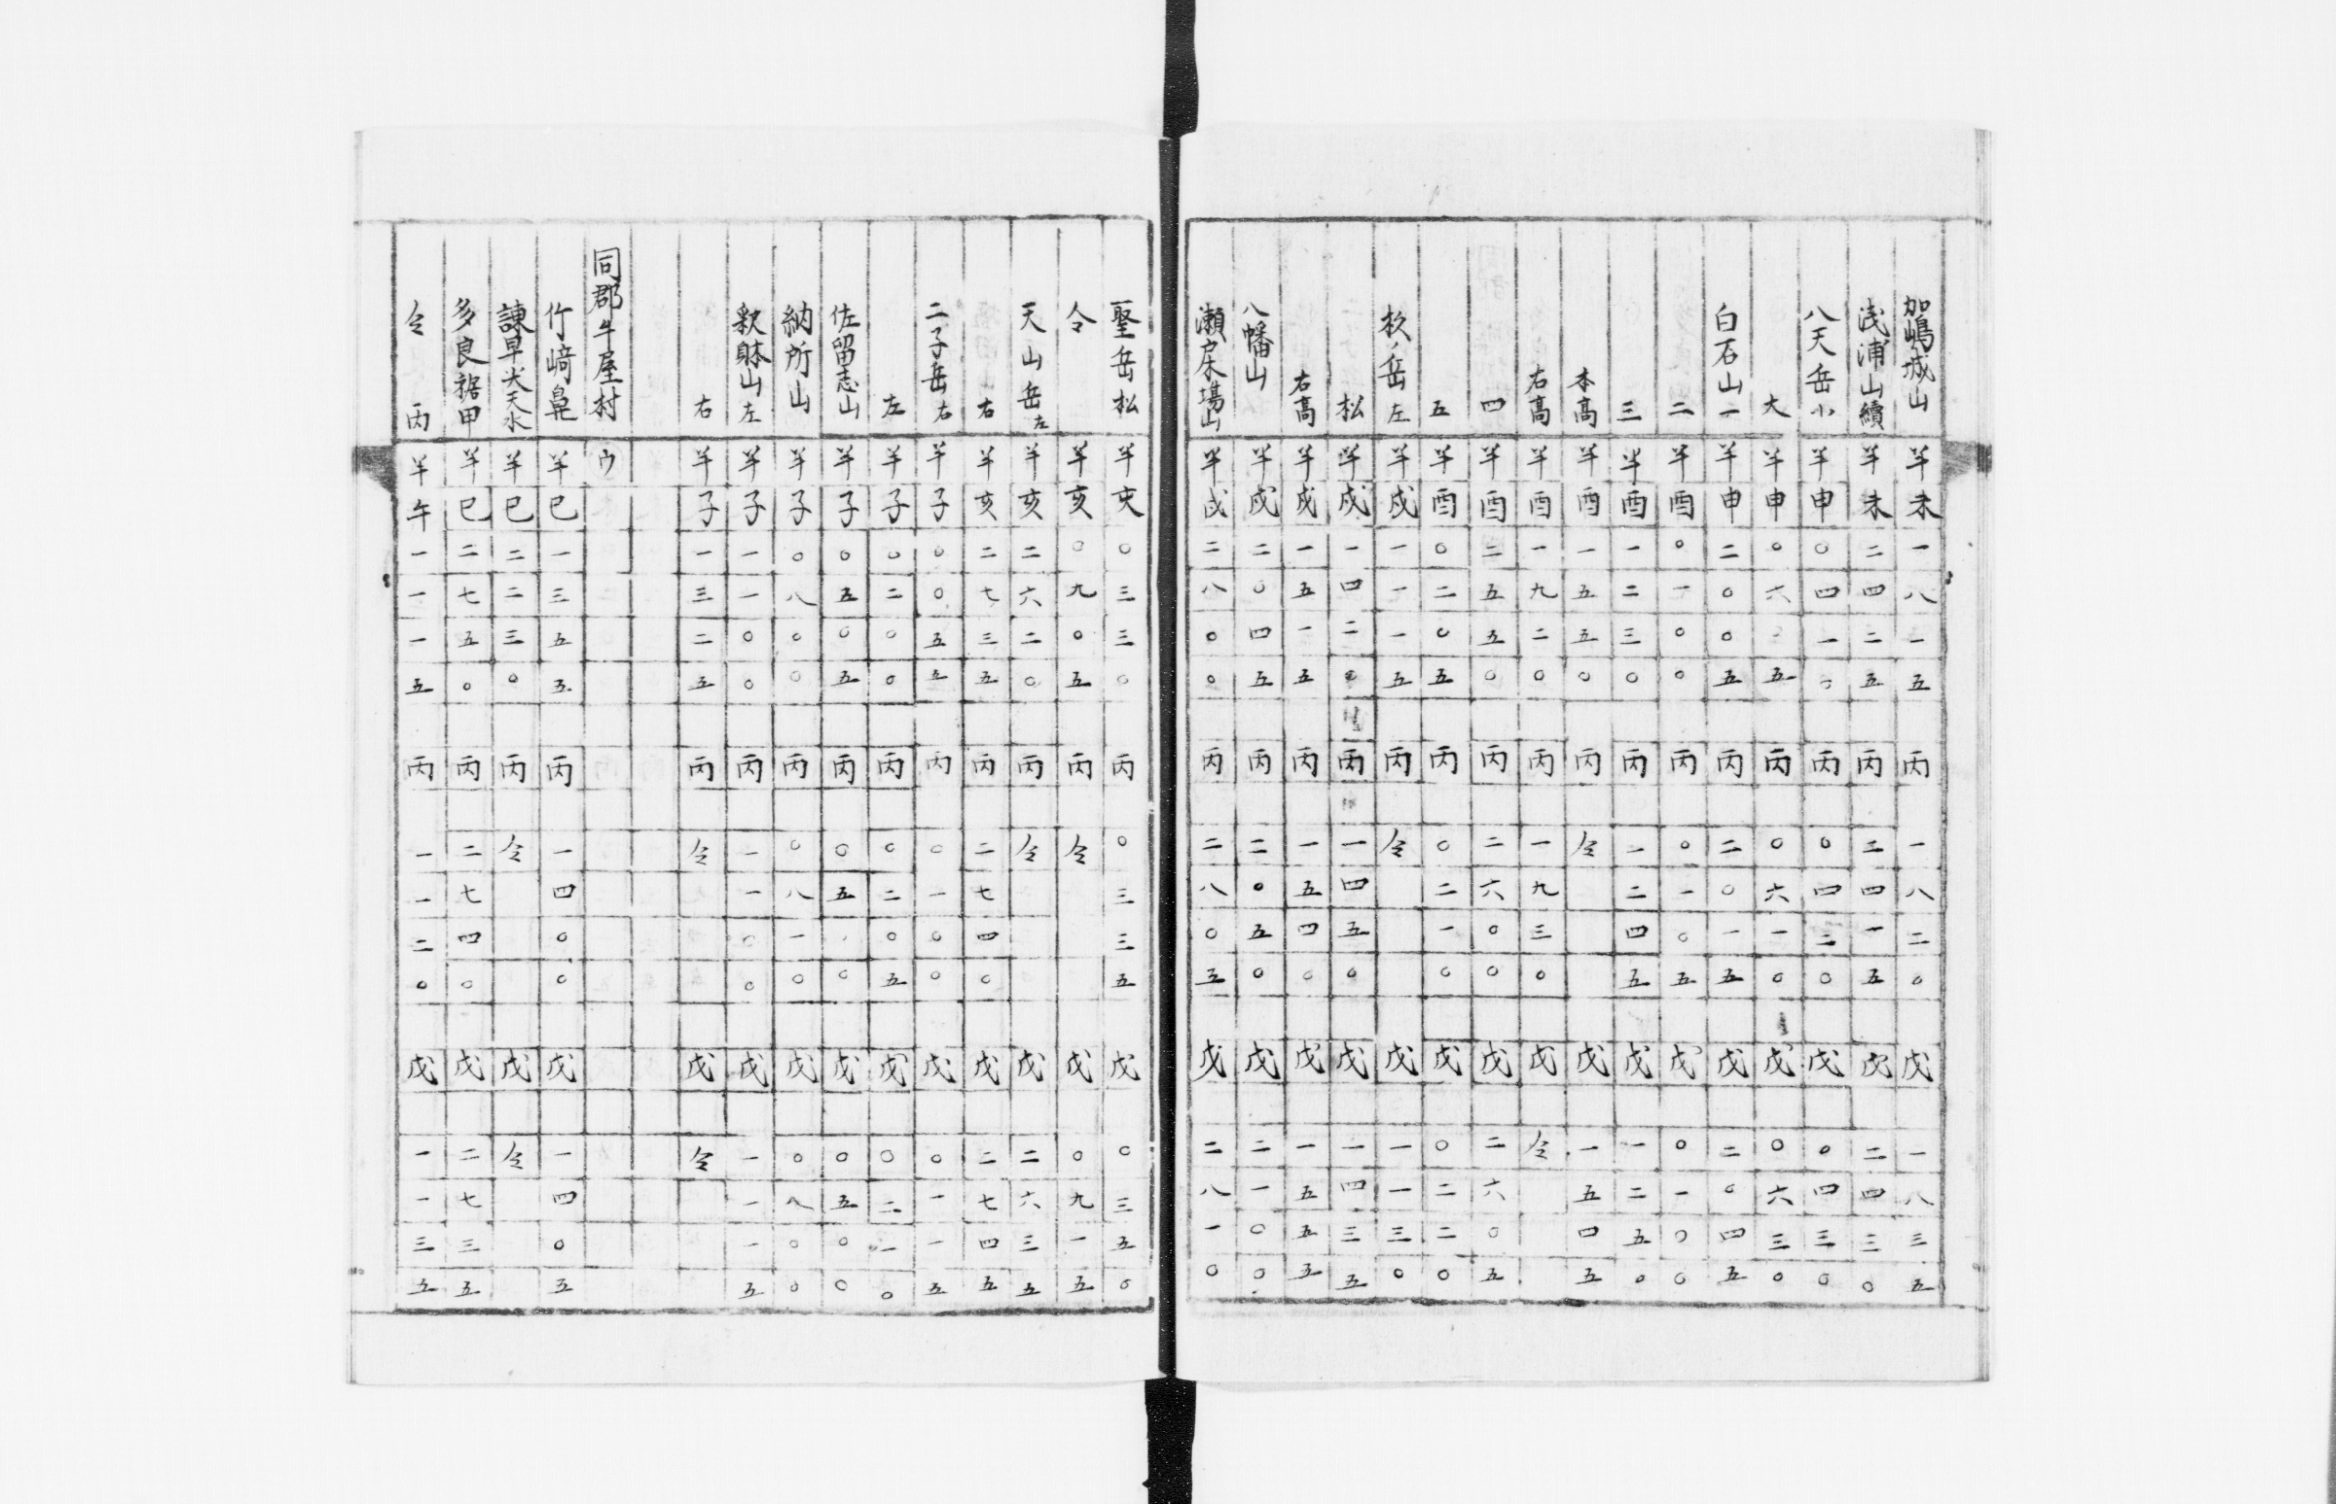 加嶋城山 半 未 一 八 一 五 丙 一 八 二 〇 戊 一 八 三 五
浅浦山續 半 未 二 四 二 五 丙 二 四 一 五 戊 二 四 三 〇
八天岳小 半 申 〇 四 一 〇 丙 〇 四 二 〇 戊 〇 四 三 〇
大 半 申 〇 六 〇 五 丙 〇 六 一 〇 戊 〇 六 三 〇
白石山一 半 申 二 〇 〇 五 丙 二 〇 一 五 戊 二 〇 四 五
二 半 酉 〇 一 〇 〇 丙 〇 一 〇 五 戊 〇 一 〇 〇
三 半 酉 一 二 三 〇 丙 一 二 四 五 戊 一 二 五 〇
本高 半 酉 一 五 五 〇 丙 仝 戊 一 五 四 五
右高 半 酉 一 九 二 〇 丙 一 九 三 〇 戊 仝
四 半 酉 二 五 五 〇 丙 二 六 〇 〇 戊 二 六 〇 五
五 半 酉 〇 二 〇 五 丙 〇 二 一 〇 戊 〇 二 二 〇
杦ノ岳左 半 戌 一 一 一 五 丙 仝 戊 一 一 三 〇
松 半 戌 一 四 二 〇 丙 一 四 五 〇 戊 一 四 三 五
右高 半 戌 一 五 一 五 丙 一 五 四 〇 戊 一 五 五 五
八幡山 半 戌 二 〇 四 五 丙 二 〇 五 〇 戊 二 一 〇 〇
瀬戸木場山 半 戌 二 八 〇 〇 丙 二 八 〇 五 戊 二 八 一 〇
聖岳松 半 亥 〇 三 三 〇 丙 〇 三 三 五 戊 〇 三 五 〇
仝 半 亥 〇 九 〇 五 丙 仝 戊 〇 九 一 五
天山岳左 半 亥 二 六 二 〇 丙 仝 戊 二 六 三 五
右 半 亥 二 七 三 五 丙 二 七 四 〇 戊 二 七 四 五
二子岳右 半 子 〇 〇 五 五 丙 〇 一 〇 〇 戊 〇 一 一 五
左 半 子 〇 二 〇 〇 丙 〇 二 〇 五 戊 〇 二 一 〇
佐留志山 半 子 〇 五 〇 五 丙 〇 五 〇 戊 〇 五 〇 〇
納所山 半 子 〇 八 〇 〇 丙 〇 八 一 〇 戊 〇 八 〇 〇
釈迦山左 半 子 一 一 〇 〇 丙 一 一 〇 〇 戊 一 一 一 五
右 半 子 一 三 二 五 丙 仝 戊 仝
同郡牛屋村 ウ
竹崎鼻 半 巳 一 三 五 五 丙 一 四 〇 〇 戊 一 四 〇 五
諫早尖天水 半 巳 二 二 三 〇 丙 仝 戊 仝
多良裾甲 半 巳 二 七 五 〇 丙 二 七 四 〇 戊 二 七 三 五
仝 丙 半 午 一 一 一 五 丙 一 一 二 〇 戊 一 一 三 五